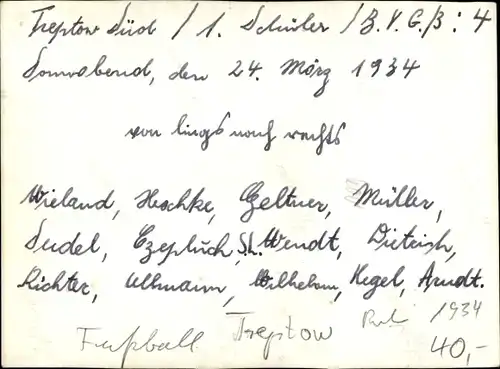 Treptow Süd / 1. Schüler / B.V.G./B : 4
Sonnabend, den 24. März 1934
von lings nach rechts
Wieland, Heschke, Geltner, Müller,
Sudel, Czepluch, Sl. Wendt, Dietrich,
Richter, Ullmann, Wilhelm, Kegel, Arndt.
Fußball Treptow 1934
40,-